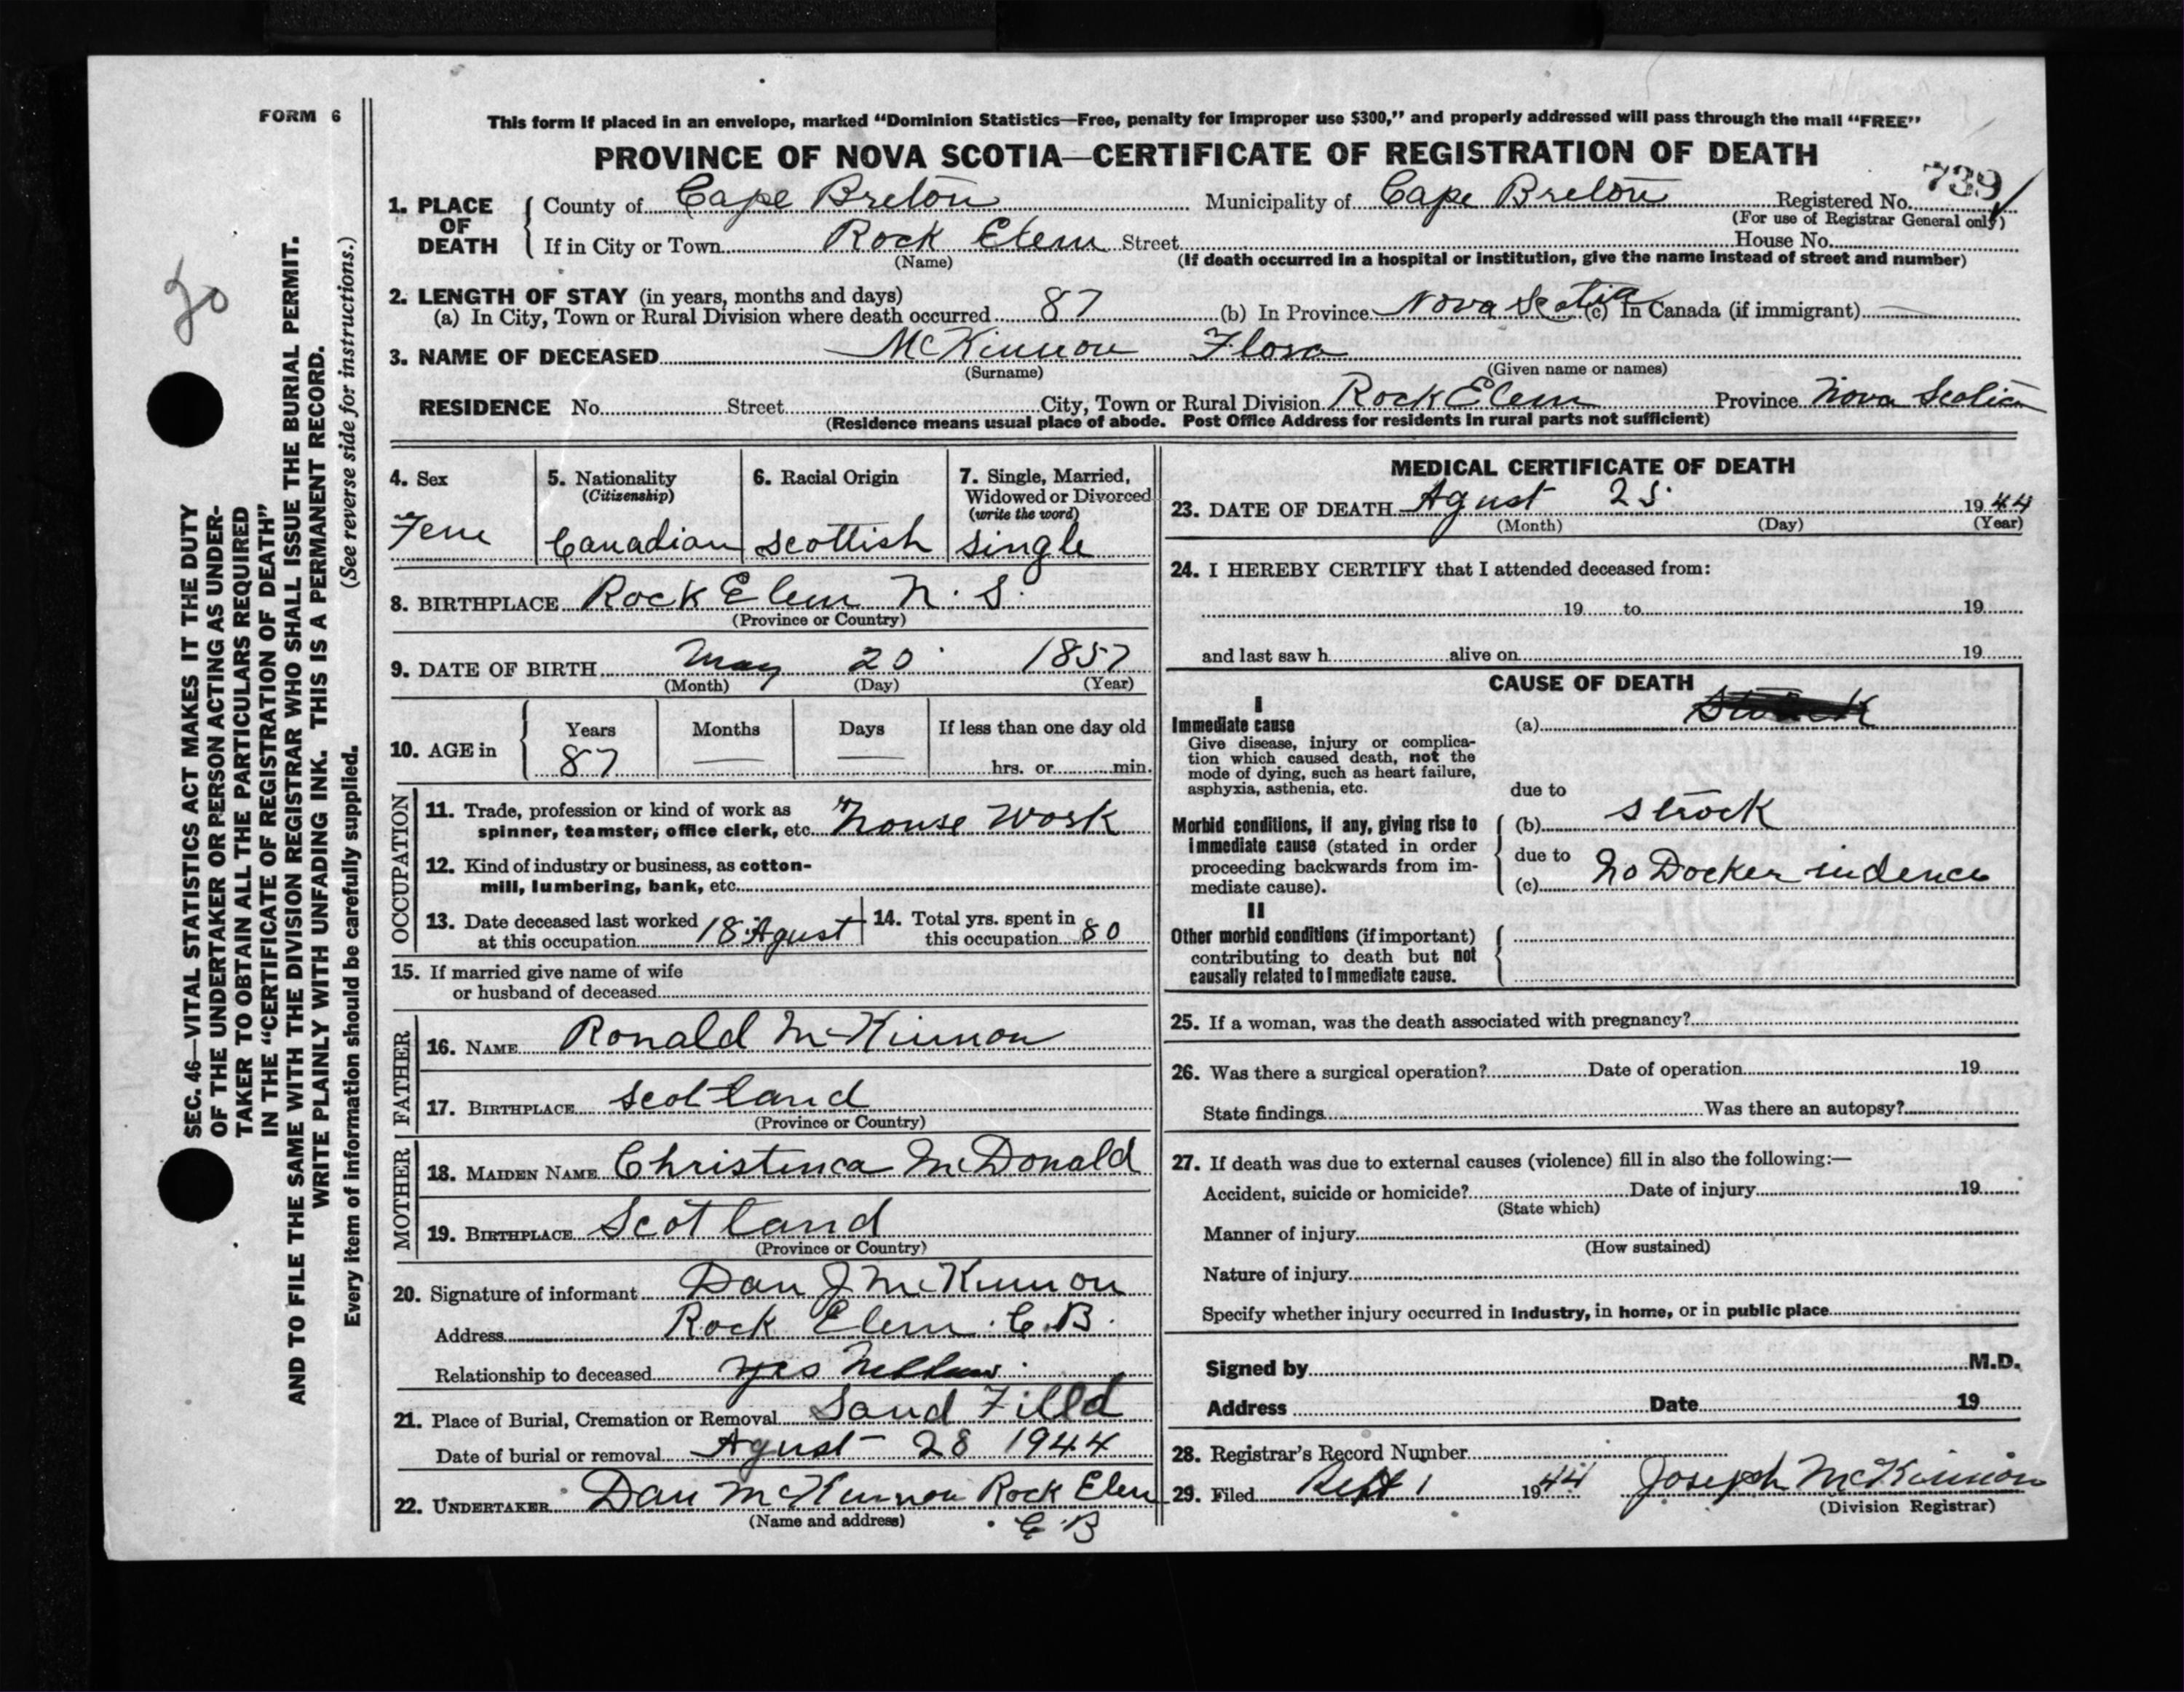 FORM 6
This form if placed in an envelope, marked “Dominion Statistics—Free, penalty for improper use $300,” and properly addressed will pass through the mail “FREE”
PROVINCE OF NOVA SCOTIA—CERTIFICATE OF REGISTRATION OF DEATH
739
1. PLACE OF DEATH { County of Cape Breton Municipality of Cape Breton Registered No.
(For use of Registrar General only)
If in City or Town Rock Elem Street House No.
(Name) (If death occurred in a hospital or institution, give the name instead of street and number)
2. LENGTH OF STAY (in years, months and days)
(a) In City, Town or Rural Division where death occurred 87 (b) In Province Nova Scotia (c) In Canada (if immigrant)
3. NAME OF DECEASED McKinnon Flora
(Surname) (Given name or names)
RESIDENCE No. Street City, Town or Rural Division Rock Elem Province Nova Scotia
(Residence means usual place of abode. Post Office Address for residents in rural parts not sufficient)
4. Sex
Fem
5. Nationality
(Citizenship)
Canadian
6. Racial Origin
Scottish
7. Single, Married,
Widowed or Divorced
(write the word)
single
8. BIRTHPLACE Rock Elem N. S.
(Province or Country)
9. DATE OF BIRTH May 20 1857
(Month) (Day) (Year)
10. AGE in { Years Months Days If less than one day old
87 — — hrs. or min.
OCCUPATION
11. Trade, profession or kind of work as
spinner, teamster, office clerk, etc. House Work
12. Kind of industry or business, as cotton-
mill, lumbering, bank, etc.
13. Date deceased last worked
at this occupation 18 Agust
14. Total yrs. spent in
this occupation 80
15. If married give name of wife
or husband of deceased
FATHER
16. NAME Ronald McKinnon
17. BIRTHPLACE Scotland
(Province or Country)
MOTHER
18. MAIDEN NAME Christinca McDonald
19. BIRTHPLACE Scotland
(Province or Country)
20. Signature of informant Dan J McKinnon
Address Rock Elem C.B.
Relationship to deceased yes
21. Place of Burial, Cremation or Removal Sand Filld
Date of burial or removal Agust 28 1944
22. UNDERTAKER Dan McKinnon Rock Elem
(Name and address) C B
MEDICAL CERTIFICATE OF DEATH
23. DATE OF DEATH Agust 25 1944
(Month) (Day) (Year)
24. I HEREBY CERTIFY that I attended deceased from:
19 to 19
and last saw h alive on 19
CAUSE OF DEATH
I
Immediate cause (a)
Give disease, injury or complica-
tion which caused death, not the
mode of dying, such as heart failure,
asphyxia, asthenia, etc.
due to
Morbid conditions, if any, giving rise to
immediate cause (stated in order
proceeding backwards from im-
mediate cause).
(b) strock
due to
(c) No Docker indence
II
Other morbid conditions (if important)
contributing to death but not
causally related to immediate cause.
25. If a woman, was the death associated with pregnancy?
26. Was there a surgical operation? Date of operation 19
State findings Was there an autopsy?
27. If death was due to external causes (violence) fill in also the following:—
Accident, suicide or homicide? Date of injury 19
(State which)
Manner of injury
(How sustained)
Nature of injury
Specify whether injury occurred in industry, in home, or in public place
Signed by M.D.
Address Date 19
28. Registrar's Record Number
29. Filed Sept 1 1944 Joseph McKinnon
(Division Registrar)
20
SEC. 46—VITAL STATISTICS ACT MAKES IT THE DUTY
OF THE UNDERTAKER OR PERSON ACTING AS UNDER-
TAKER TO OBTAIN ALL THE PARTICULARS REQUIRED
IN THE “CERTIFICATE OF REGISTRATION OF DEATH”
AND TO FILE THE SAME WITH THE DIVISION REGISTRAR WHO SHALL ISSUE THE BURIAL PERMIT.
WRITE PLAINLY WITH UNFADING INK. THIS IS A PERMANENT RECORD.
Every item of information should be carefully supplied. (See reverse side for instructions.)